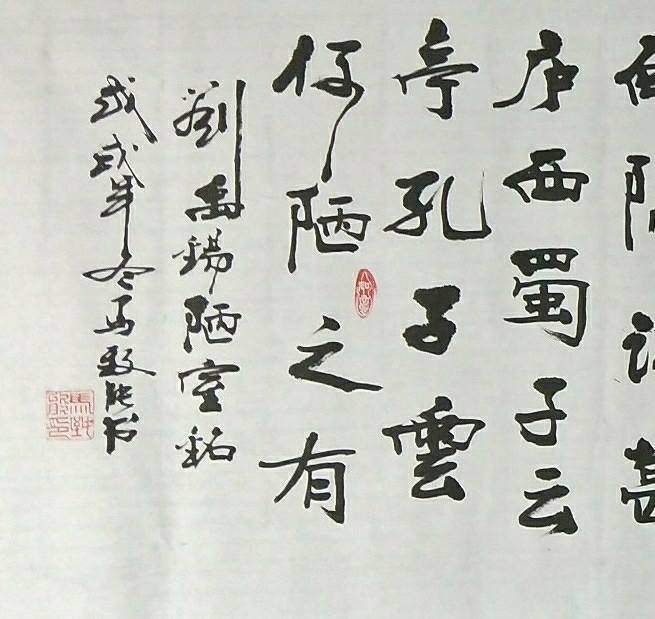 庐西蜀子云
亭孔子雲
何陋之有
劉禹錫陋室銘
戊戌年冬马致能书